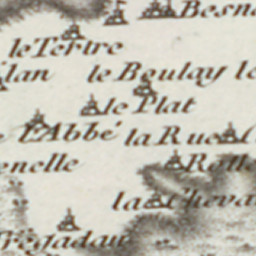 Besn
le Tertre
lan le Boulay le
le Plat
L'Abbé la Rue
enelle Rolle
la Cheva
Trégadau